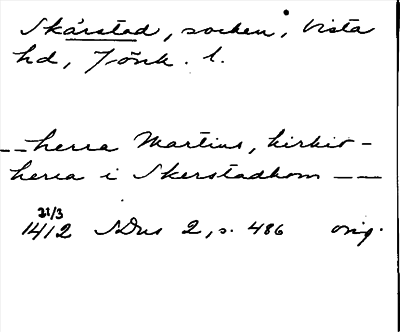 Skärstad, socken, Vista
hd, Jönk. l.
-- herra Martins, kirkio-
herra i Skerstadhom ---
21/3
1412 SDns 2, s. 486 orig.